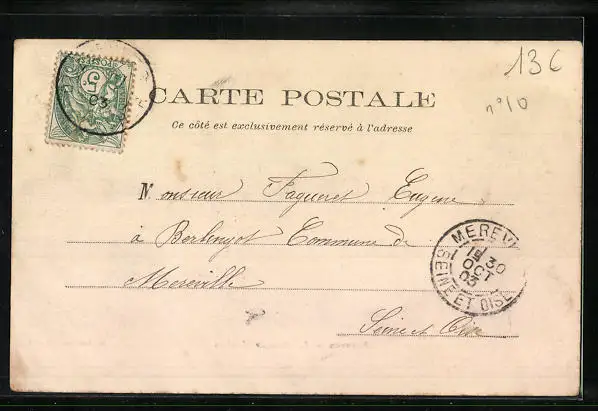 13C
n°10
5
03
CARTE POSTALE
Ce côté est exclusivement réservé à l'adresse
Monsieur Faqueret Eugène
à Berlengot Commune de
Mereville
Seine et Oise
MEREV
30
OCT
03
SEINE ET OISE